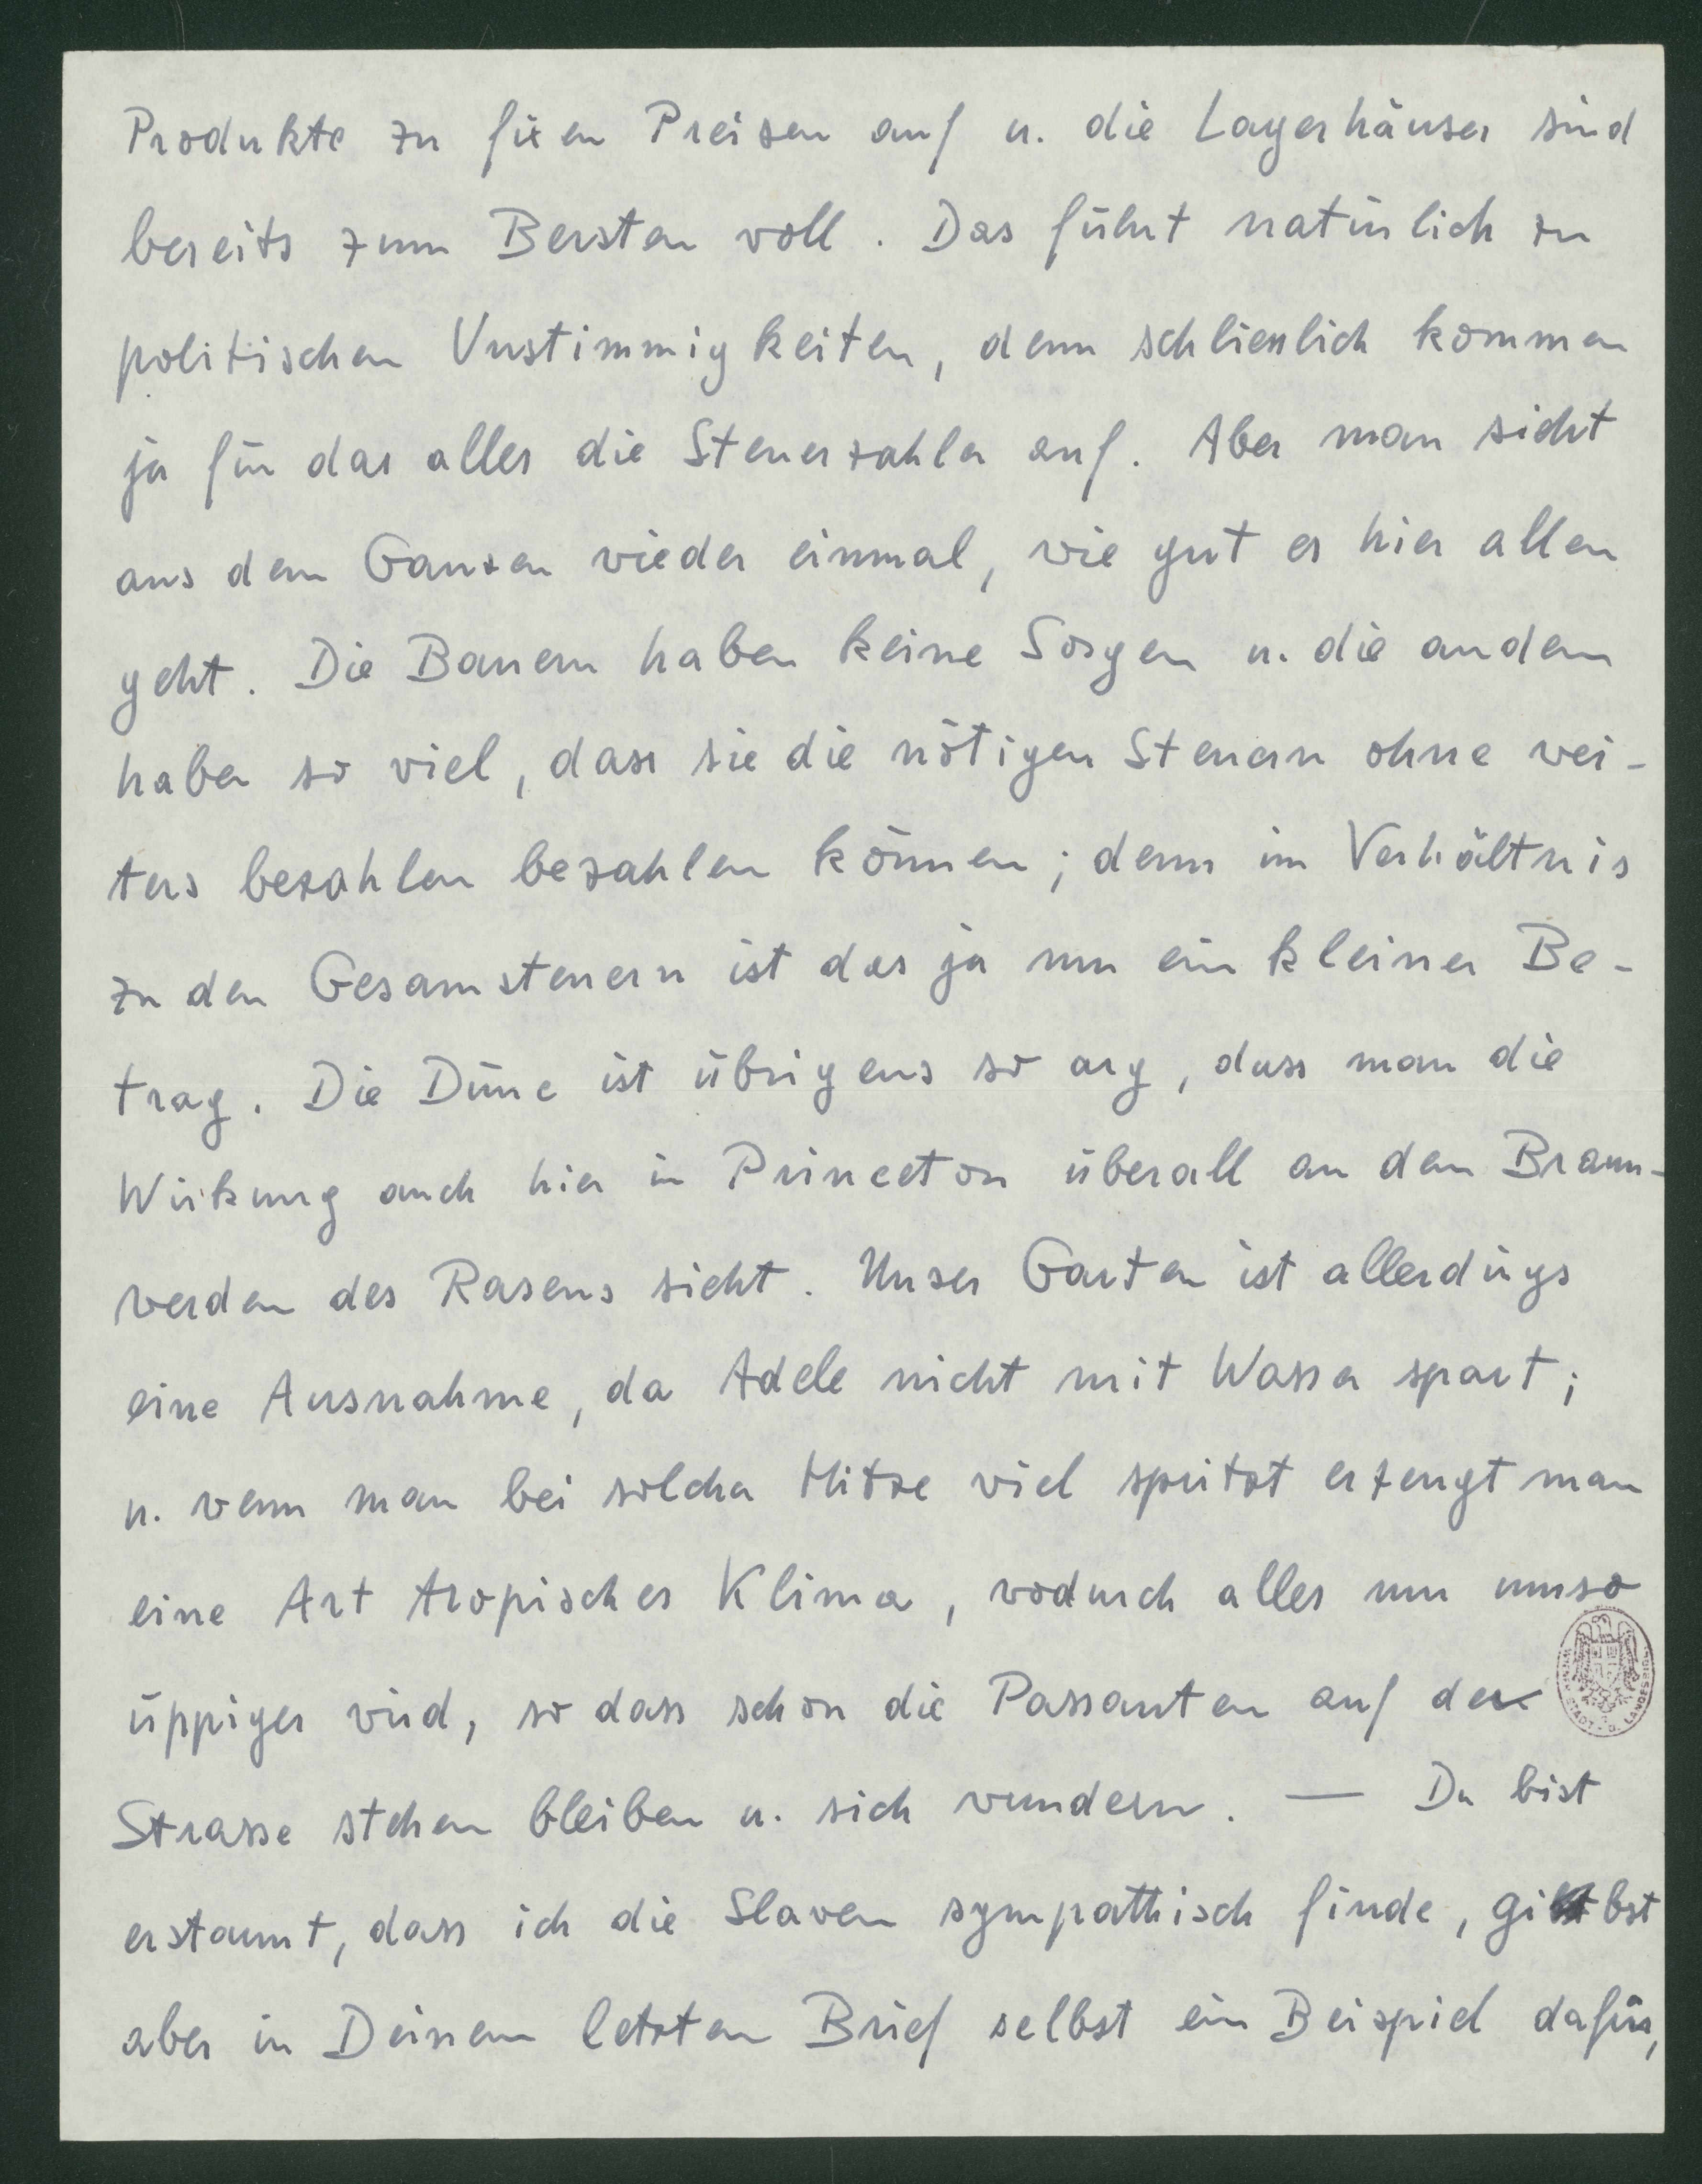 Produkte zu fixen Preisen auf u. die Lagerhäuser sind
bereits zum Bersten voll. Das führt natürlich zu
politischen Unstimmigkeiten, denn schliesslich kommen
ja für das alles die Steuerzahler auf. Aber man sieht
aus dem Ganzen wieder einmal, wie gut es hier allen
geht. Die Bauern haben keine Sorgen u. die andern
haben so viel, dass sie die nötigen Steuern ohne wei-
ters bezahlen bezahlen können; denn im Verhältnis
zu den Gesamsteuern ist das ja nur ein kleiner Be-
trag. Die Dürre ist übrigens so arg, dass man die
Wirkung auch hier in Princeton überall an dem Braun-
werden des Rasens sieht. Unser Garten ist allerdings
eine Ausnahme, da Adele nicht mit Wasser spart;
u. wenn man bei solcher Hitze viel spritzt erzeugt man
eine Art tropisches Klima, wodurch alles nur umso
üppiger wird, so dass schon die Passanten auf der
Strasse stehen bleiben u. sich wundern. — Du bist
erstaunt, dass ich die Slaven sympathisch finde, gibst
aber in Deinem letzten Brief selbst ein Beispiel dafür,